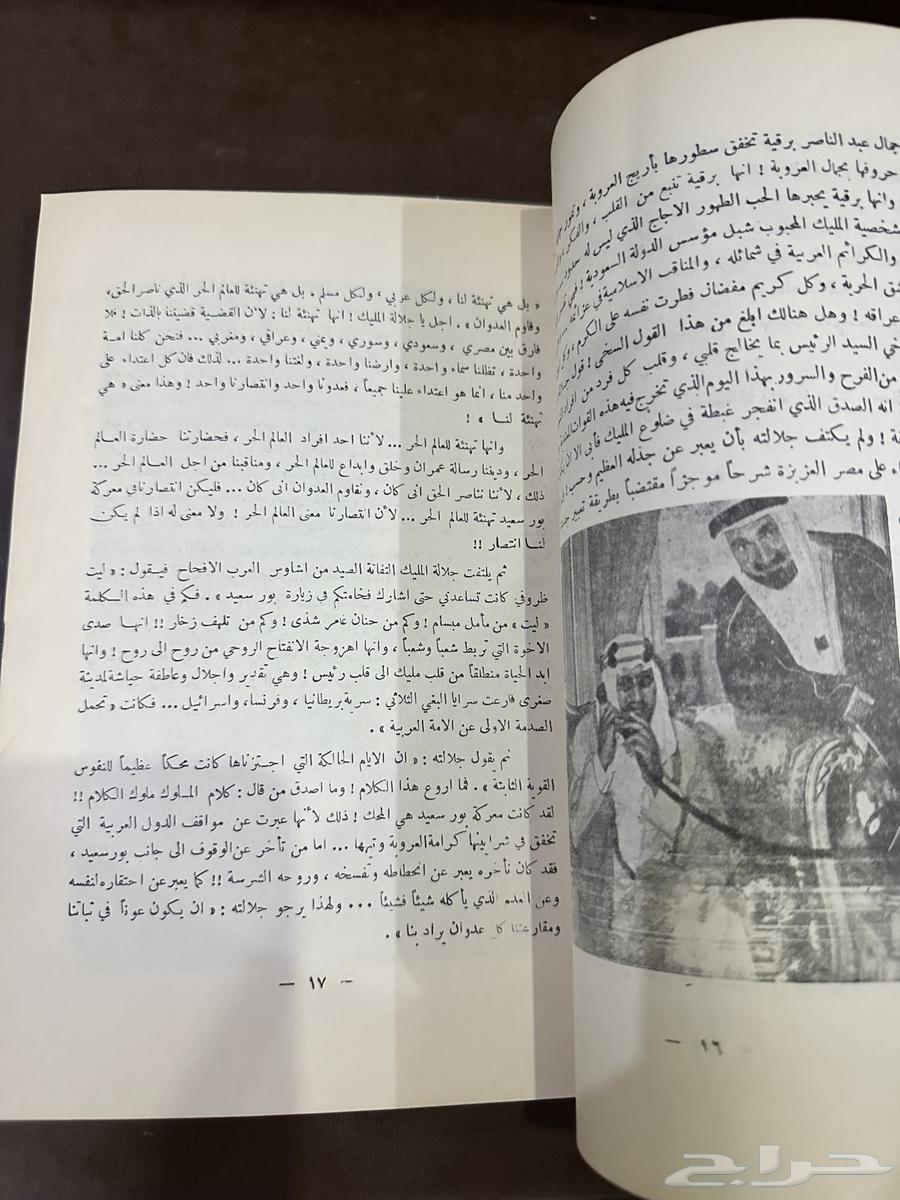 جمال عبد الناصر برقية تخفق سطورها بأريج العروبة ،
حروفها بجمال العروبة ! انها برقية تنبع من القلب ، والفكر
وانها برقية يحبرها الحب الطهور الاجاج الذي ليس له حدود
شخصية المليك المحبوب شبل مؤسس الدولة السعودية !
والكرائم العربية في شمائله ، والمناقب الاسلامية في
الحرية ، وكل كريم مفضاز فطرت نفسه على الكرم ،
عراقه ! وهل هنالك ابلغ من هذا القول السخي !
السيد الرئيس بما يخالج قلبي ، وقلب كل فرد من افراد
من الفرح والسرور بهذا اليوم الذي تخرج فيه هذه القوات
انه الصدق الذي انفجر غبطة في ضلوع المليك فأبى الا ان
! ولم يكتف جلالته بأن يعبر عن جذله العظيم
على مصر العزيزة شرحاً موجزاً مقتضباً بطريقة تعبير
— ١٦ —
« بل هي تهنئة لنا ، ولكل عربي ، ولكل مسلم . بل هي تهنئة للعالم الحر الذي ناصر الحق ،
وقاوم العدوان » . اجل يا جلالة المليك ! انها تهنئة لنا : لأن القضية قضيتنا بالذات ! فلا
فارق بين مصري ، وسعودي ، وسوري ، ويمني ، وعراقي ، ومغربي ... فنحن كلنا امة
واحدة ، تظللنا سماء واحدة ، وارضنا واحدة ، ولغتنا واحدة ... لذلك فان كل اعتداء على
واحد منا ، انما هو اعتداء علينا جميعاً ، فعدونا واحد وانتصارنا واحد ! وهذا معنى « هي
تهنئة لنا » !
وانها تهنئة للعالم الحر ... لأننا احد افراد العالم الحر ، فحضارتنا حضارة العالم
الحر ، وديننا رسالة عمران وخلق وابداع للعالم الحر ، ومناقبنا من اجل العالم الحر ...
ذلك ، لأننا نناصر الحق انى كان ، ونقاوم العدوان انى كان ... فليكن انتصارنا في معركة
بور سعيد تهنئة للعالم الحر ... لأن انتصارنا معنى العالم الحر ! ولا معنى له اذا لم يكن
لنا انتصار !!
ثم يلتفت جلالة المليك التفاتة الصيد من اشاوس العرب الاقحاح فيقول : « ليت
ظروفي كانت تساعدني حتى اشارك فخامتكم في زيارة بور سعيد » . فكم في هذه الكلمة
« ليت » من مأمل مبسام ! وكم من حنان غامر شذى ! وكم من تلهف زخار !! انها صدى
الاخوة التي تربط شعباً وشعباً ، وانها اهزوجة الانفتاح الروحي من روح الى روح ! وانها
ابد الحياة منطلقاً من قلب مليك الى قلب رئيس ! وهي تقدير واجلال وعاطفة جياشة لمدينة
صغرى قارعت سرايا البغي الثلاثي : سرية بريطانيا ، وفرنسا ، واسرائيل ... فكانت « تحمل
الصدمة الاولى عن الامة العربية » .
ثم يقول جلالته : « ان الايام الحالكة التي اجتزناها كانت محكاً عظيماً للنفوس
القوية الثابتة » . فما اروع هذا الكلام ! وما اصدق من قال : كلام الملوك ملوك الكلام !!
لقد كانت معركة بور سعيد هي المحك ! ذلك لأنها عبرت عن مواقف الدول العربية التي
تخفق في شرايينها كرامة العروبة وتيهها ... اما من تأخر عن الوقوف الى جانب بور سعيد ،
فقد كان تأخره يعبر عن انحطاطه وتفسخه ، وروحه الشرسة !! كما يعبر عن احتقاره لنفسه
وعن الذي يأكله شيئاً فشيئاً ... ولهذا يرجو جلالته : « ان يكون عوناً في ثباتنا
ومقارعتنا كل عدوان يراد بنا » .
— ١٧ —
حراج